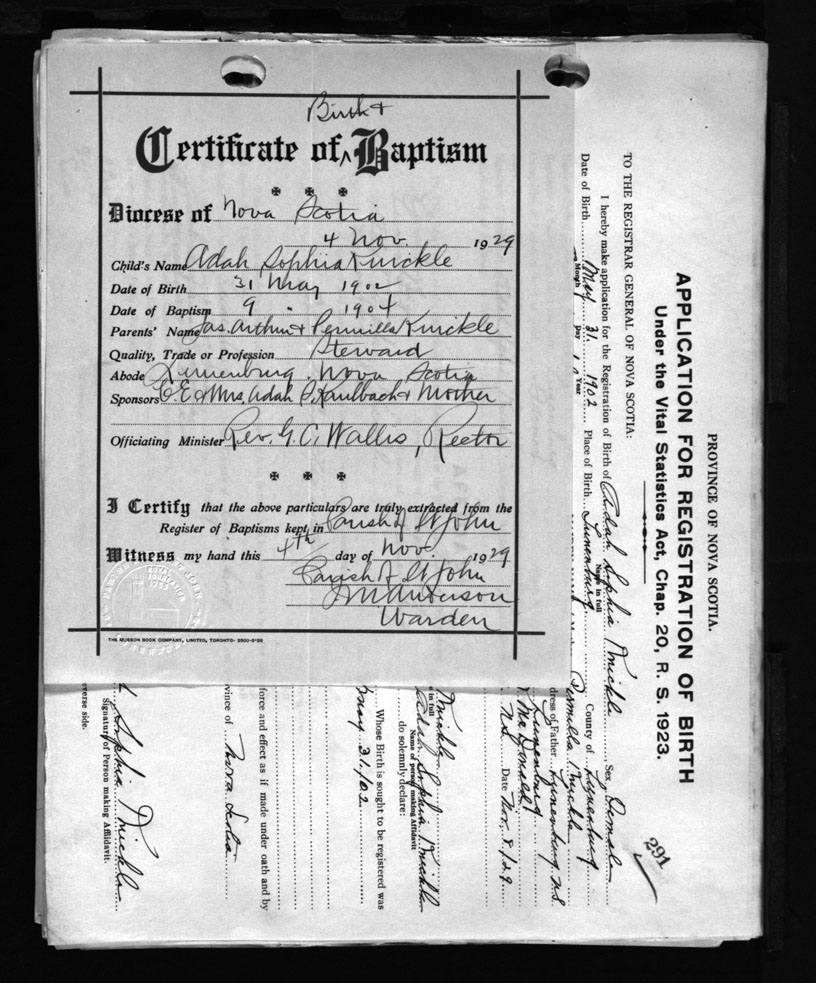 Birth +
Certificate of ^ Baptism
Diocese of Nova Scotia
4 Nov. 1929
Child's Name Adah Sophia Knickle
Date of Birth 31 May 1902
Date of Baptism 9 " 1904
Parents' Name Jas. Arthur & Permilla Knickle
Quality, Trade or Profession Steward
Abode Lunenburg, Nova Scotia
Sponsors C. E. & Mrs. Adah S. Kaulbach & Mother
Officiating Minister Rev. G. C. Wallis, Rector
I Certify that the above particulars are truly extracted from the
Register of Baptisms kept in Parish of St John
Witness my hand this 4th day of Nov. 1929
Parish of St John
Warden
THE MUSSON BOOK COMPANY, LIMITED, TORONTO-
PROVINCE OF NOVA SCOTIA.
APPLICATION FOR REGISTRATION OF BIRTH
Under the Vital Statistics Act, Chap. 20, R. S. 1923.
291
TO THE REGISTRAR GENERAL OF NOVA SCOTIA:
I hereby make application for the Registration of Birth of Adah Sophia Knickle Sex Female
Name in full
Date of Birth May 31 1902 Place of Birth Lunenburg County of Lunenburg
Month Day Year
Permilla Knickle
dress of Father Lunenburg N.S.
Lunenburg
McDonald
N.S. Date Nov. 8/29
Knickle
e in full
Adah Sophia Knickle
Name of person making Affidavit
do solemnly declare:
Whose Birth is sought to be registered was
May 31/02
force and effect as if made under oath and by
vince of Nova Scotia
Sophia Knickle
Signature of Person making Affidavit.
everse side.